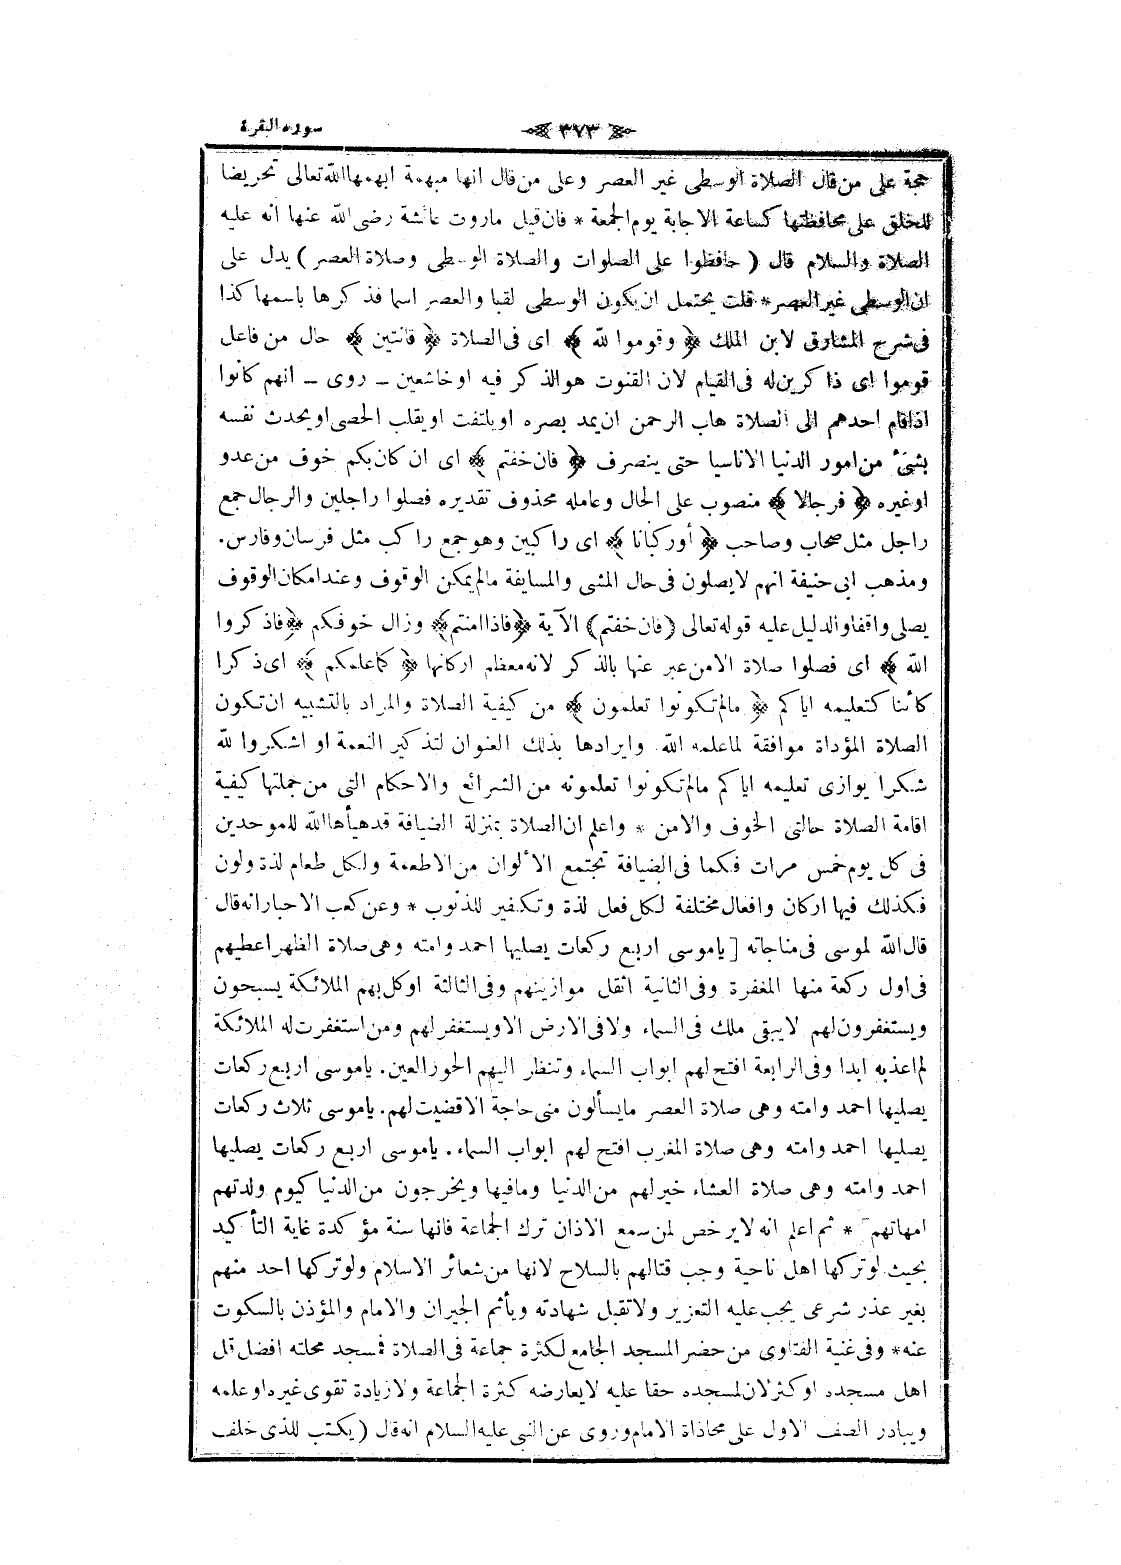 سورة البقرة
٣٧٣
حجة على من قال الصلاة الوسطى غير العصر وعلى من قال انها مبهمة ابهمها الله تعالى تحريضا
للخلق على محافظتها كساعة الاجابة يوم الجمعة * فان قيل ماروت عائشة رضى الله عنها انه عليه
الصلاة والسلام قال ( حافظوا على الصلوات والصلاة الوسطى وصلاة العصر ) يدل على
ان الوسطى غير العصر * قلت يحتمل ان يكون الوسطى لقبا والعصر اسما فذكرها باسمها كذا
فى شرح المشارق لابن الملك ﴿ وقوموا لله ﴾ اى فى الصلاة ﴿ قانتين ﴾ حال من فاعل
قوموا اى ذاكرين له فى القيام لان القنوت هو الذكر فيه او خاشعين ـ روى ـ انهم كانوا
اذا قام احدهم الى الصلاة هاب الرحمن ان يمد بصره او يلتفت او يقلب الحصى او يحدث نفسه
بشئ من امور الدنيا الا ناسيا حتى ينصرف ﴿ فان خفتم ﴾ اى ان كان بكم خوف من عدو
او غيره ﴿ فرجالا ﴾ منصوب على الحال وعامله محذوف تقديره فصلوا راجلين والرجال جمع
راجل مثل صحاب وصاحب ﴿ أو ركبانا ﴾ اى راكبين وهو جمع راكب مثل فرسان وفارس.
ومذهب ابى حنيفة انهم لا يصلون فى حال المشى والمسايفة مالم يمكن الوقوف وعند امكان الوقوف
يصلى واقفا والدليل عليه قوله تعالى (فان خفتم) الآية ﴿فاذا امنتم﴾ وزال خوفكم ﴿فاذكروا
الله ﴾ اى فصلوا صلاة الامن عبر عنها بالذكر لانه معظم اركانها ﴿ كما علمكم ﴾ اى ذكرا
كائنا كتعليمه اياكم ﴿ مالم تكونوا تعلمون ﴾ من كيفية الصلاة والمراد بالتشبيه ان تكون
الصلاة المؤداة موافقة لما علمه الله وايرادها بذلك العنوان لتذكير النعمة او اشكروا لله
شكرا يوازى تعليمه اياكم مالم تكونوا تعلمونه من الشرائع والاحكام التى من جملتها كيفية
اقامة الصلاة حالتى الخوف والامن * واعلم ان الصلاة بمنزلة الضيافة قد هيأها الله للموحدين
فى كل يوم خمس مرات فكما فى الضيافة تجتمع الألوان من الاطعمة ولكل طعام لذة ولون
فكذلك فيها اركان وافعال مختلفة لكل فعل لذة وتكفير للذنوب * وعن كعب الاحبار انه قال
قال الله لموسى فى مناجاته [ ياموسى اربع ركعات يصليها احمد وامته وهى صلاة الظهر اعطيهم
فى اول ركعة منها المغفرة وفى الثانية اثقل موازينهم وفى الثالثة اوكل بهم الملائكة يسبحون
ويستغفرون لهم لا يبقى ملك فى السماء ولا فى الارض الا ويستغفر لهم ومن استغفرت له الملائكة
لم اعذبه ابدا وفى الرابعة افتح لهم ابواب السماء وتنظر اليهم الحور العين. ياموسى اربع ركعات
يصليها احمد وامته وهى صلاة العصر ما يسألون منى حاجة الا قضيت لهم. ياموسى ثلاث ركعات
يصليها احمد وامته وهى صلاة المغرب افتح لهم ابواب السماء. ياموسى اربع ركعات يصليها
احمد وامته وهى صلاة العشاء خير لهم من الدنيا وما فيها ويخرجون من الدنيا كيوم ولدتهم
امهاتهم ] * ثم اعلم انه لا يرخص لمن سمع الاذان ترك الجماعة فانها سنة مؤكدة غاية التأكيد
بحيث لو تركها اهل ناحية وجب قتالهم بالسلاح لانها من شعائر الاسلام ولو تركها احد منهم
بغير عذر شرعى يجب عليه التعزير ولا تقبل شهادته ويأثم الجيران والامام والمؤذن بالسكوت
عنه * وفى غنية الفتاوى من حضر المسجد الجامع لكثرة جماعة فى الصلاة فمسجد محلته افضل قل
اهل مسجده او كثر لان لمسجده حقا عليه لا يعارضه كثرة الجماعة ولا زيادة تقوى غيره او علمه
ويبادر الصف الاول على محاذاة الامام وروى عن النبى عليه السلام انه قال ( يكتب للذى خلف